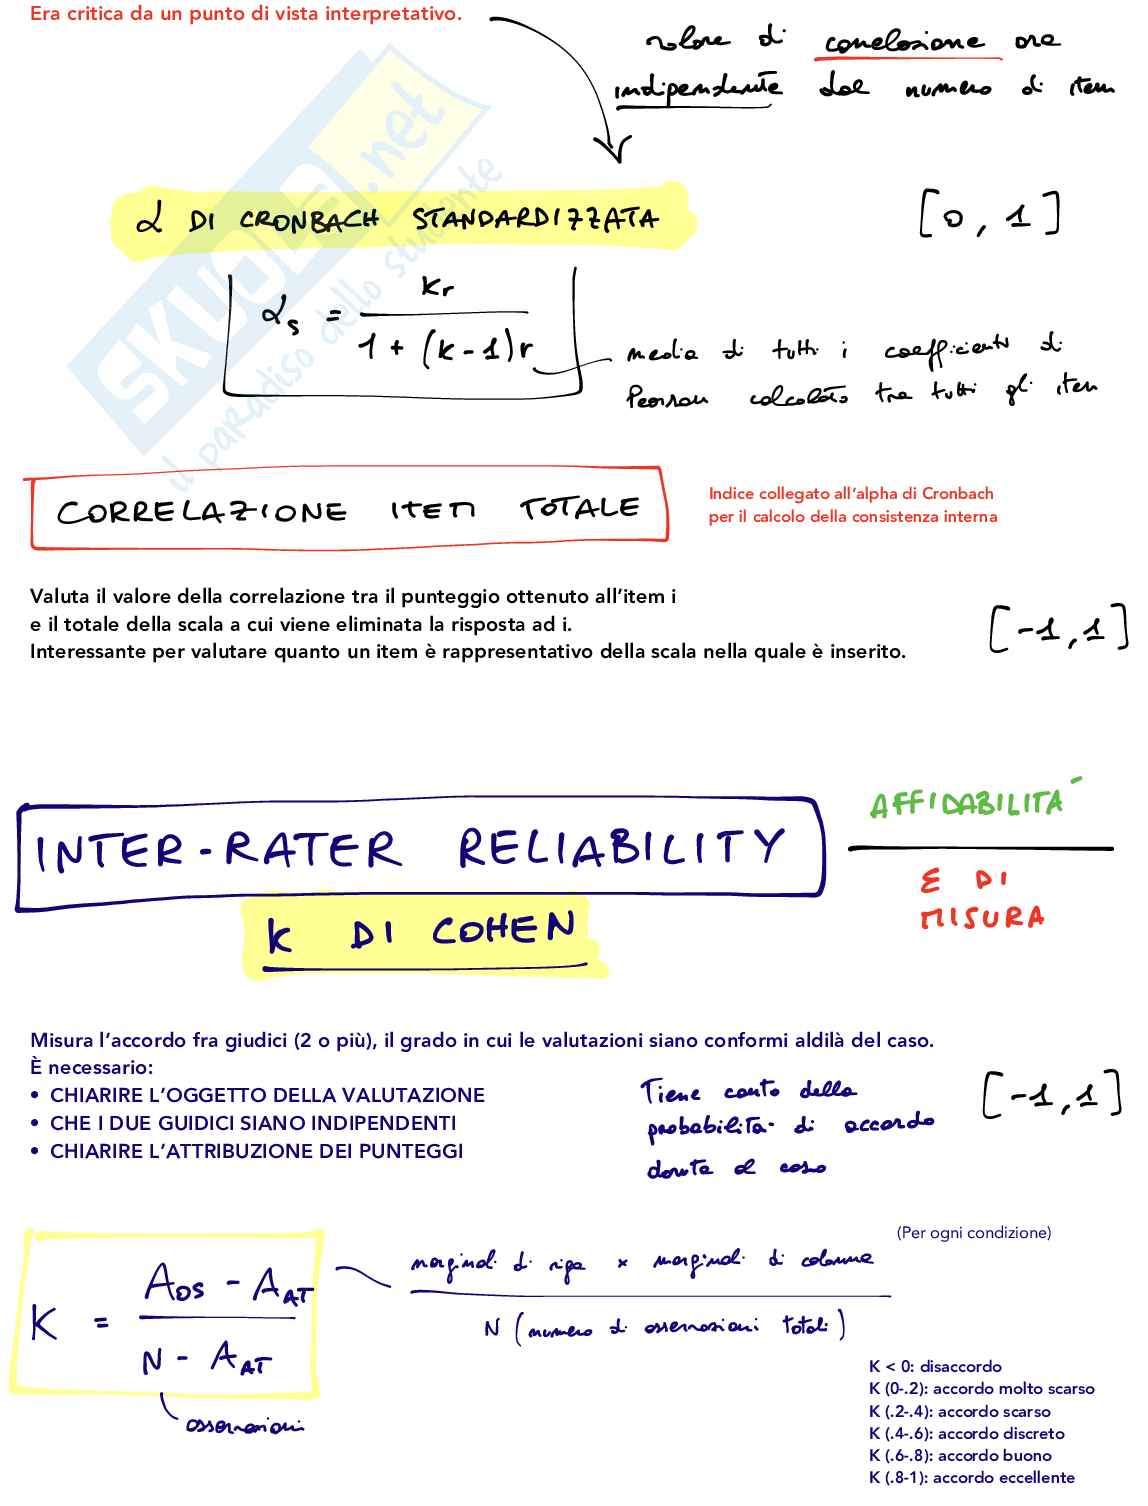 Era critica da un punto di vista interpretativo.
valore di correlazione ora
indipendente dal numero di item
α DI CRONBACH STANDARDIZZATA
[0, 1]
αs = kr / 1 + (k - 1)r
media di tutti i coefficienti di
Pearson calcolato tra tutti gli item
CORRELAZIONE ITEM TOTALE
Indice collegato all'alpha di Cronbach
per il calcolo della consistenza interna
Valuta il valore della correlazione tra il punteggio ottenuto all'item i
e il totale della scala a cui viene eliminata la risposta ad i.
Interessante per valutare quanto un item è rappresentativo della scala nella quale è inserito.
[-1, 1]
INTER-RATER RELIABILITY
AFFIDABILITÀ
E DI
MISURA
K DI COHEN
Misura l'accordo fra giudici (2 o più), il grado in cui le valutazioni siano conformi aldilà del caso.
È necessario:
• CHIARIRE L'OGGETTO DELLA VALUTAZIONE
• CHE I DUE GUIDICI SIANO INDIPENDENTI
• CHIARIRE L'ATTRIBUZIONE DEI PUNTEGGI
Tiene conto della
probabilità di accordo
dovuta al caso
[-1, 1]
(Per ogni condizione)
K = AOS - AAT / N - AAT
marginali di riga × marginali di colonna
N (numero di osservazioni totali)
osservazioni
K < 0: disaccordo
K (0-.2): accordo molto scarso
K (.2-.4): accordo scarso
K (.4-.6): accordo discreto
K (.6-.8): accordo buono
K (.8-1): accordo eccellente
SKUOLA.net
il paradiso dello studente